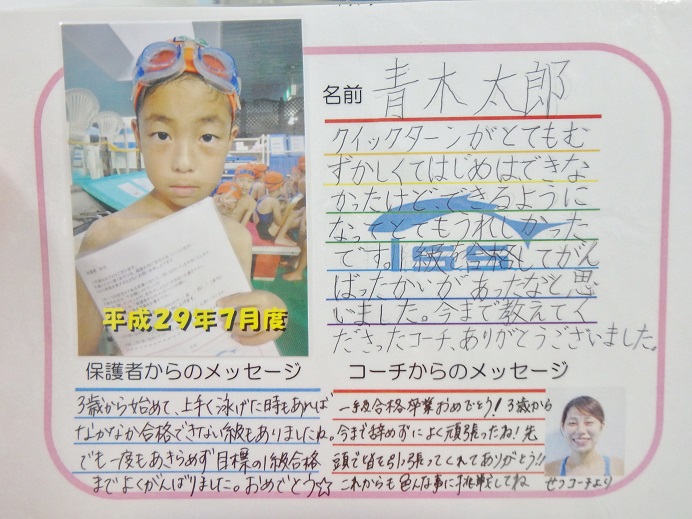 名前 青木太郎
クイックターンがとてもむ
ずかしくてはじめはできな
かったけど、できるように
なってとてもうれしかった
です。1級を合格してがん
ばったかいがあったなと思
いました。今まで教えてく
ださったコーチ、ありがとうございました。
平成29年7月度
保護者からのメッセージ
3歳から始めて、上手く泳げた時もあれば
なかなか合格できない級もありましたね。
でも一度もあきらめず目標の1級合格
までよくがんばりました。おめでとう☆
コーチからのメッセージ
一級合格卒業おめでとう！3歳から
今まで辞めずによく頑張ったね！先
頭で皆を引っ張ってくれてありがとう!!
これからも色んな事に挑戦してね
せつコーチより